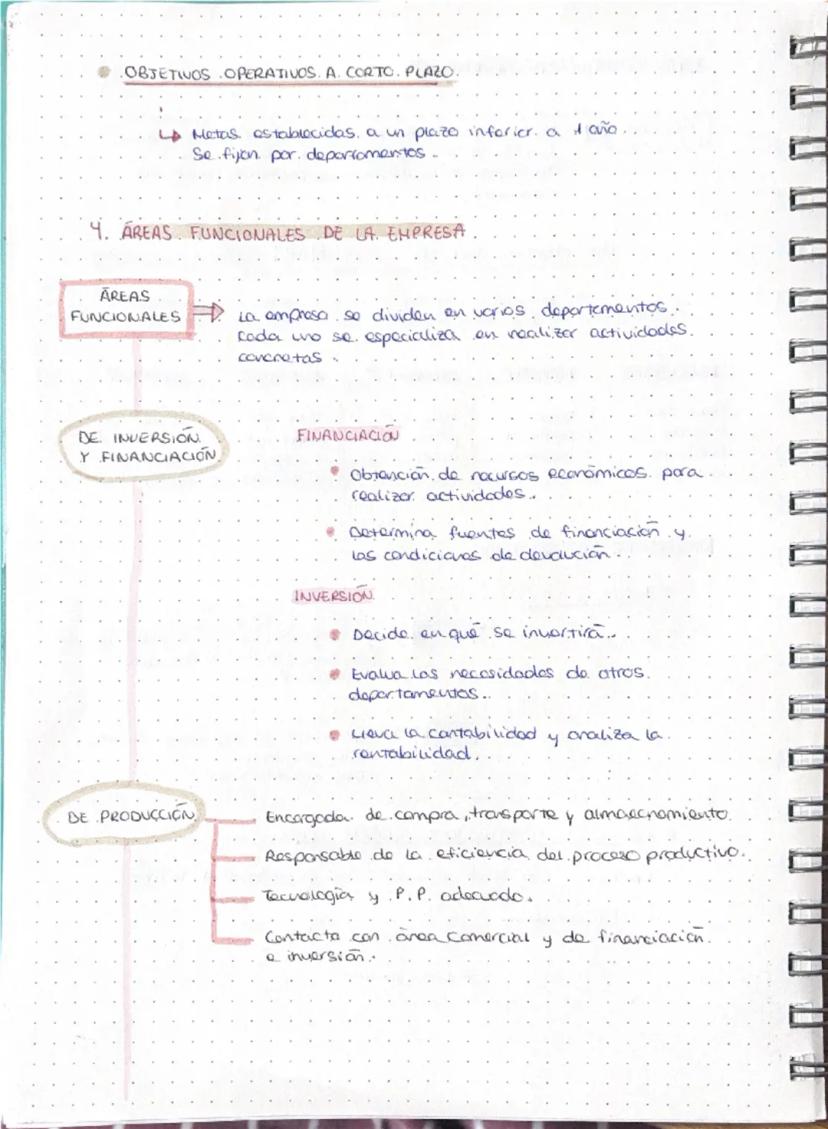 OBJETIVOS OPERATIVOS A CORTO PLAZO.
↳ Metas establecidas a un plazo inferior a 1 año.
Se fijan por departamentos.
4. ÁREAS FUNCIONALES DE LA EMPRESA.
ÁREAS
FUNCIONALES
⇒ La empresa se dividen en varios departamentos.
Cada uno se especializa en realizar actividades
concretas.
DE INVERSIÓN
Y FINANCIACIÓN
FINANCIACIÓN
• Obtención de recursos económicos para
realizar actividades.
• Determina fuentes de financiación y
las condiciones de devolución.
INVERSIÓN
• Decide en qué se invertirá.
• Evalua las necesidades de otros
departamentos.
• Lleva la contabilidad y analiza la
rentabilidad.
DE PRODUCCIÓN
Encargada de compra, transporte y almacenamiento.
Responsable de la eficiencia del proceso productivo.
Tecnología y P.P. adecuado.
Contacta con área comercial y de financiación
e inversión.